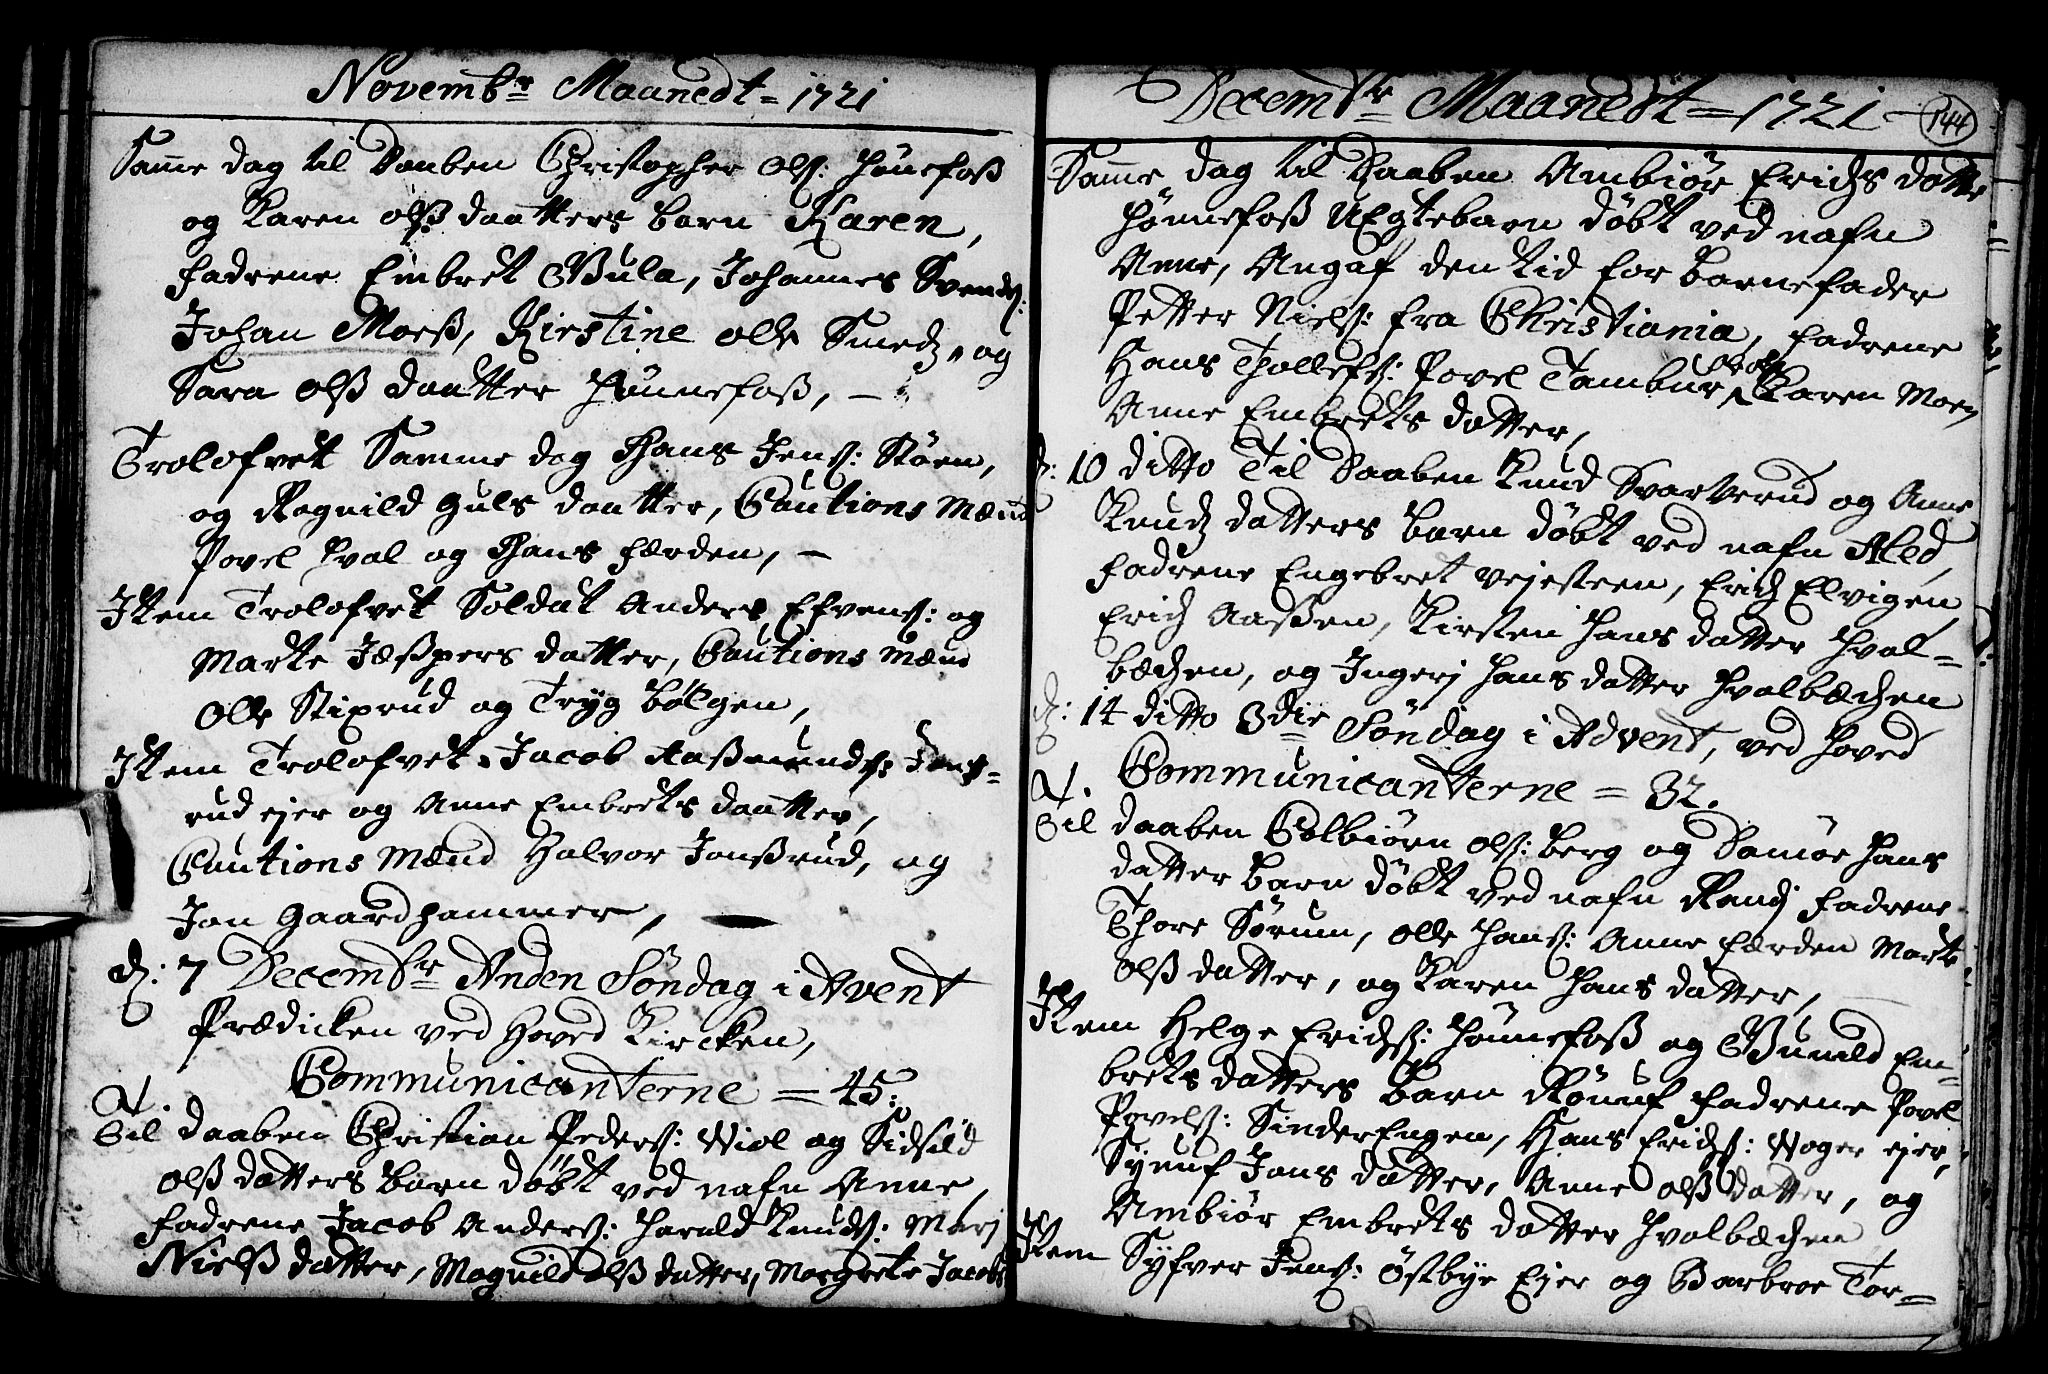 Novembr Maanedt = 1721
Samme dag til Daaben Christopher Ols: Hønefoss
og Karen olss daatters barn Karen,
fadrene Embret Gvula, Johannes Svends:
Johan Moess, Kirstine olle Smedz, og
Sara olss daatter Hønnefoss, —
Trolofvet Samme dag Hans Jens: Støen,
og Ragnild Guls daatter, Cautions Mænd
Povel Hval og Hans færden, —
Item Trolofvet Soldat Anders Efvens: og
Marte Jæsspers datter, Cautions Mænd
Olle Stixrud og Tryg Bølgen,
Item Trolofvet Jacob Aassmunds: Jons=
rud ejer og Anne Embrets daatter,
Cautions Mænd Halvor Jonssrud, og
Jon Gaardhammer, —
d: 7 Decembr Anden Søndag i Avent
Prædicken ved Hoved Kircken,
Communicanterne = 45:
N.
Til daaben Christian Peders: Wiol og Sidsild
olss datters barn døbt ved nafn Anne,
fadrene Jacob Anders: Harald Knuds: Marj
Nielss datter, Magnild olss datter, Margrete Jacobs
Decembr Maanedt = 1721 144
Samme dag til Daaben Ambiør Erichs datter
Hønnefoss Uegtebarn døbt ved nafn
Anne, Angaf den tid for barnefader
Petter Niels: fra Christiania, fadrene
Hans Thollefs: Povel Tambur, Karen Moen
Anne Embrets datter,
d: 10 ditto Til Daaben Knud Svarverud og Anne
Knudz datters barn døbt ved nafn Aled,
fadrene Engebret Vejesteen, Erich Elvigen
Erich Aassen, Kirsten Hans datter Hval=
bæchen, og Ingerj Hans datter Hvalbæchen
d: 14 ditto 3die Søndag i Advent, ved Hoved
N. Communicanterne = 32.
Til daaben Colbiørn Ols: berg og Damør Hans
datter barn døbt ved nafn Randj fadrene
Thore Sørum, Olle Hans: Anne færden Marte
olss datter, og Karen Hans datter,
Item Helge Erichs: Hønnefoss og Gvuneld Em=
brets datters barn Rønuf fadrene Povel
Povels: SinderEngen, Hans Erichs: Wager ejer,
Synuf Jons datter, Anne olss datter, og
Ambiør Embrets datter Hvalbæchen
Item Syfver Jens: Østbye Ejer og Barbroe Tor=